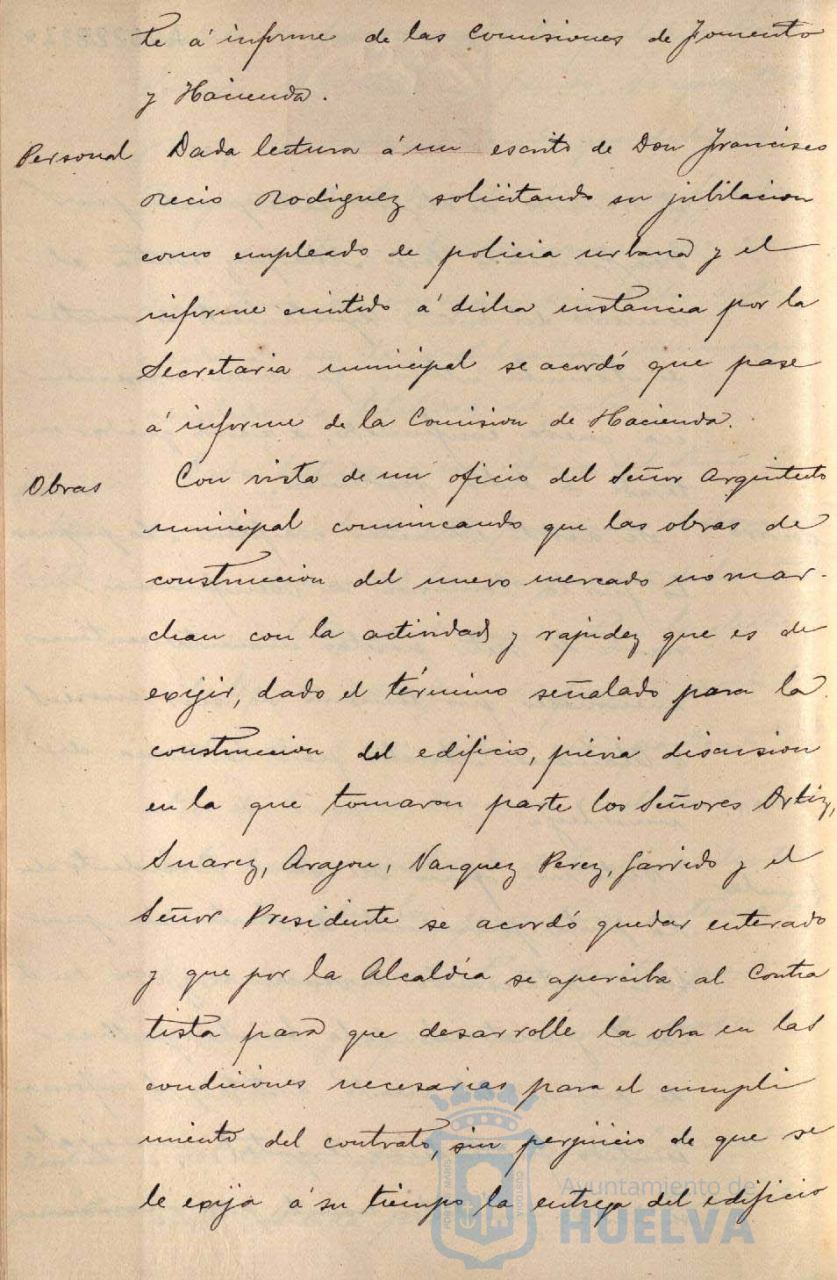 te á informe de las Comisiones de Fomento
y Hacienda.
Personal Dada lectura á un escrito de Don Francisco
Recio Rodriguez solicitando su jubilacion
como empleado de policia urbana y el
informe emitido á dicha instancia por la
Secretaria municipal se acordó que pase
á informe de la Comision de Hacienda.
Obras Con vista de un oficio del Señor Arquitecto
municipal comunicando que las obras de
construccion del nuevo mercado no mar-
chan con la actividad y rapidez que es de
exijir, dado el término señalado para la
construccion del edificio, prévia discusion
en la que tomaron parte los Señores Ortiz,
Suarez, Aragon, Vazquez Perez, Garrido y el
Señor Presidente se acordó quedar enterado
y que por la Alcaldía se aperciba al Contra
tista para que desarrolle la obra en las
condiciones necesarias para el cumpli
miento del contrato, sin perjuicio de que se
le exija á su tiempo la entrega del edificio
Ayuntamiento de
HUELVA